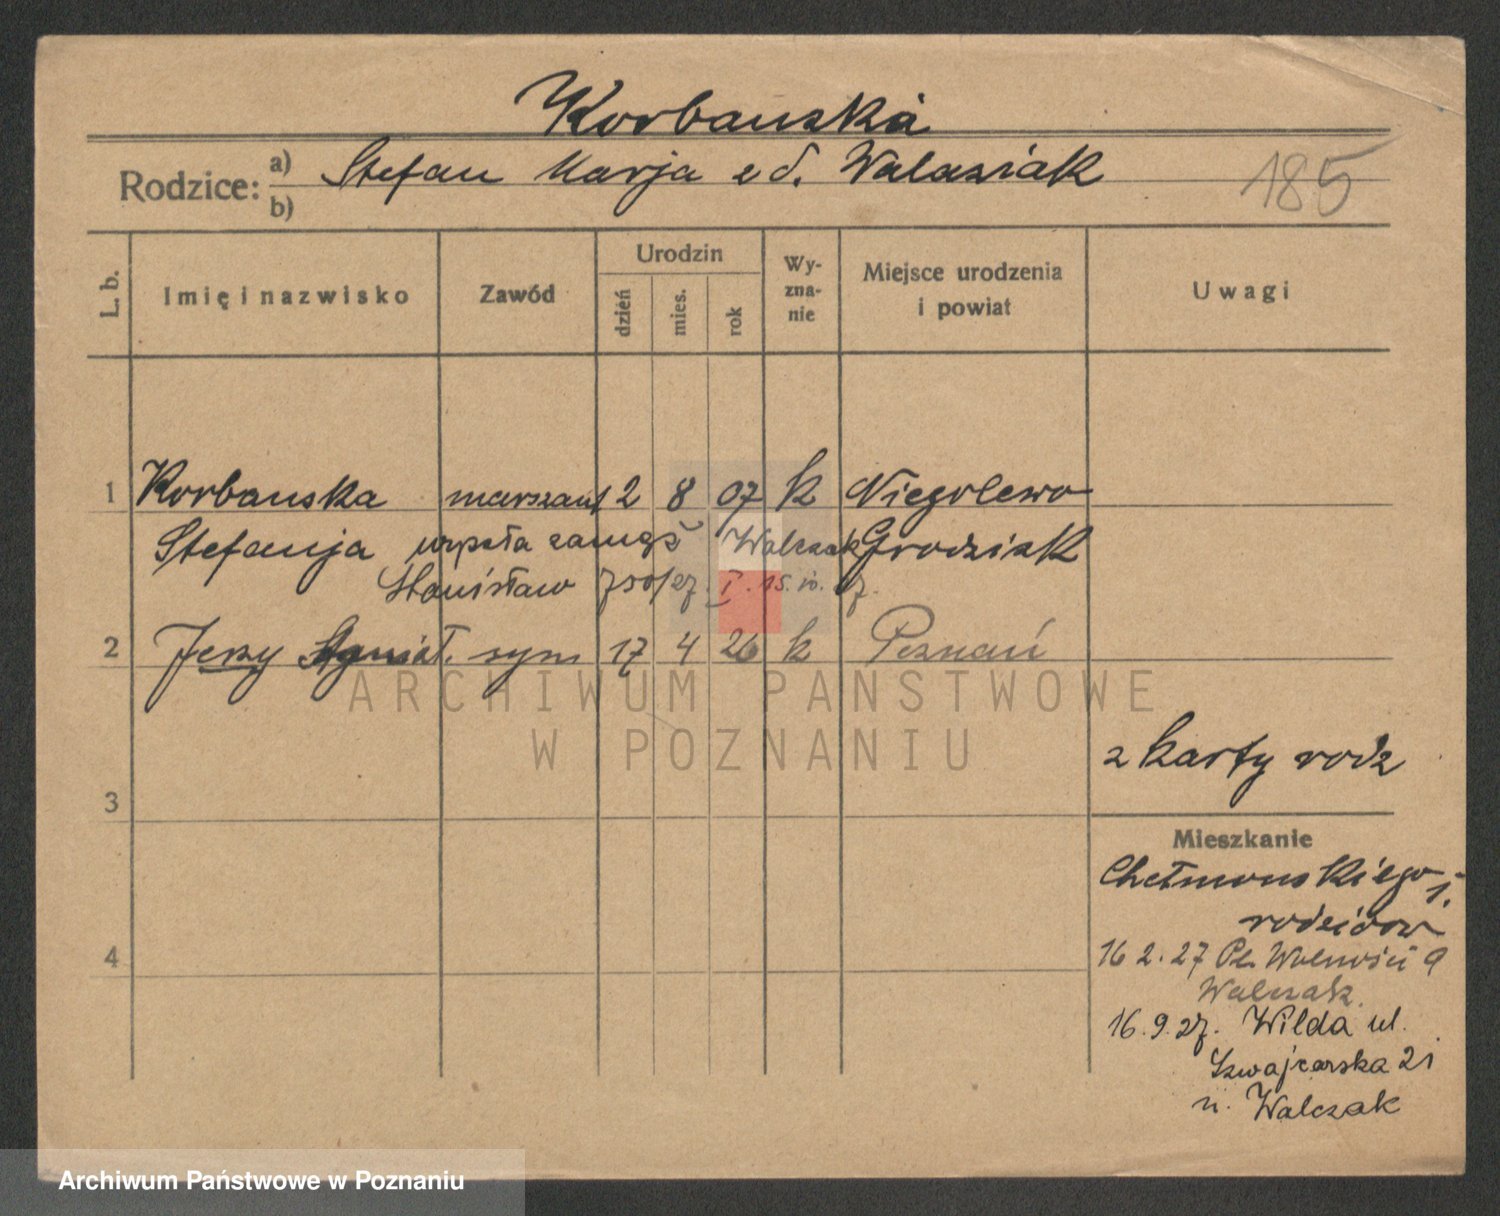 Korbanska
Rodzice: a) Stefan Marja z d. Walasiak
b)
185
L. b.
Imię i nazwisko
Zawód
Urodzin
dzień
mies.
rok
Wy-
zna-
nie
Miejsce urodzenia
i powiat
Uwagi
1 Korbanska 2 8 07 k Niegolewo
Stefanja wyszła zamąż Walczak Grodzisk
Stanisław 750/27. I. 15. 10. 27.
2 Jerzy syn 17 4 26 k Poznań
ARCHIWUM PAŃSTWOWE
W POZNANIU
z karty rodz
3
Mieszkanie
Chełmonskiego
rodziców
4
16 2. 27 Pl. Wolności 9
Walczak.
16. 9. 27. Wilda ul.
Szwajcarska 21
u. Walczak
Archiwum Państwowe w Poznaniu